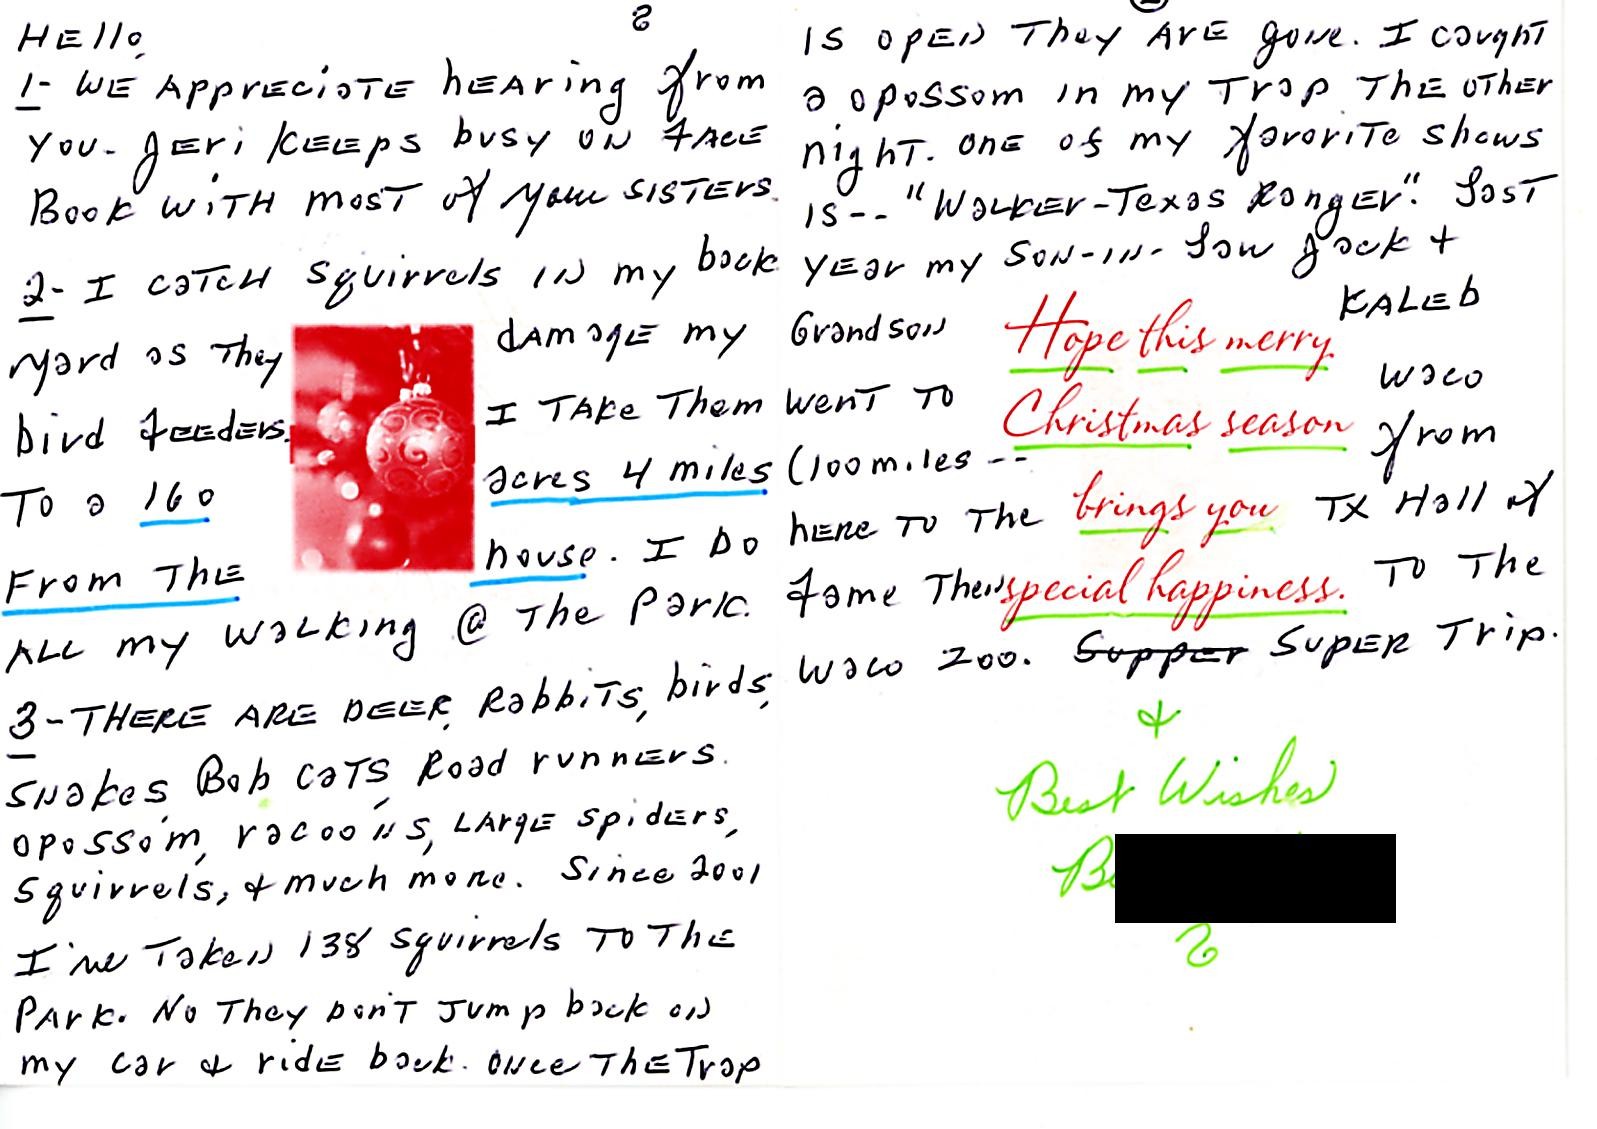 Hello,
1- WE AppreciaTE hEAring from
you. Jeri KEEps busy on FACE
Book WiTH mosT of your SISTErs.
2- I caTcH squirrels in my back
yard as They damage my
bird feeders. I TAKe Them
To a 160 acres 4 miles
From The house. I Do
ALL my walking @ The Park.
3- THERE ARE DEER, RabbiTs, birds,
snakes, Bob caTs, Road runners.
opossom, racoons, LArge spiders,
squirrels, & much more. Since 2001
I've Taken 138 squirrels To The
Park. No They don'T Jump back on
my car & ride back. once The Trap
is open They ARE gone. I caught
a opossom in my Trap The other
night. one of my favorite shows
is -- "Walker-Texas Ranger". Last
year my Son-in-Law Jack &
Grandson KALEb
went To Waco
(100 miles -- from
here To The TX Hall of
Fame Then To The
Waco Zoo. Supper SUPER Trip.
Hope this merry
Christmas season
brings you
special happiness.
&
Best Wishes
Be